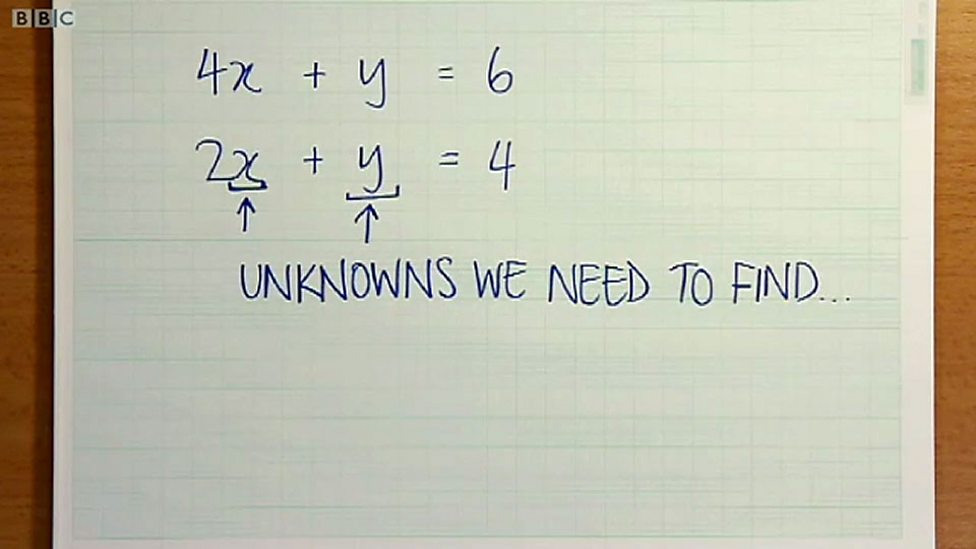 BBC
4x + y = 6
2x + y = 4
UNKNOWNS WE NEED TO FIND...